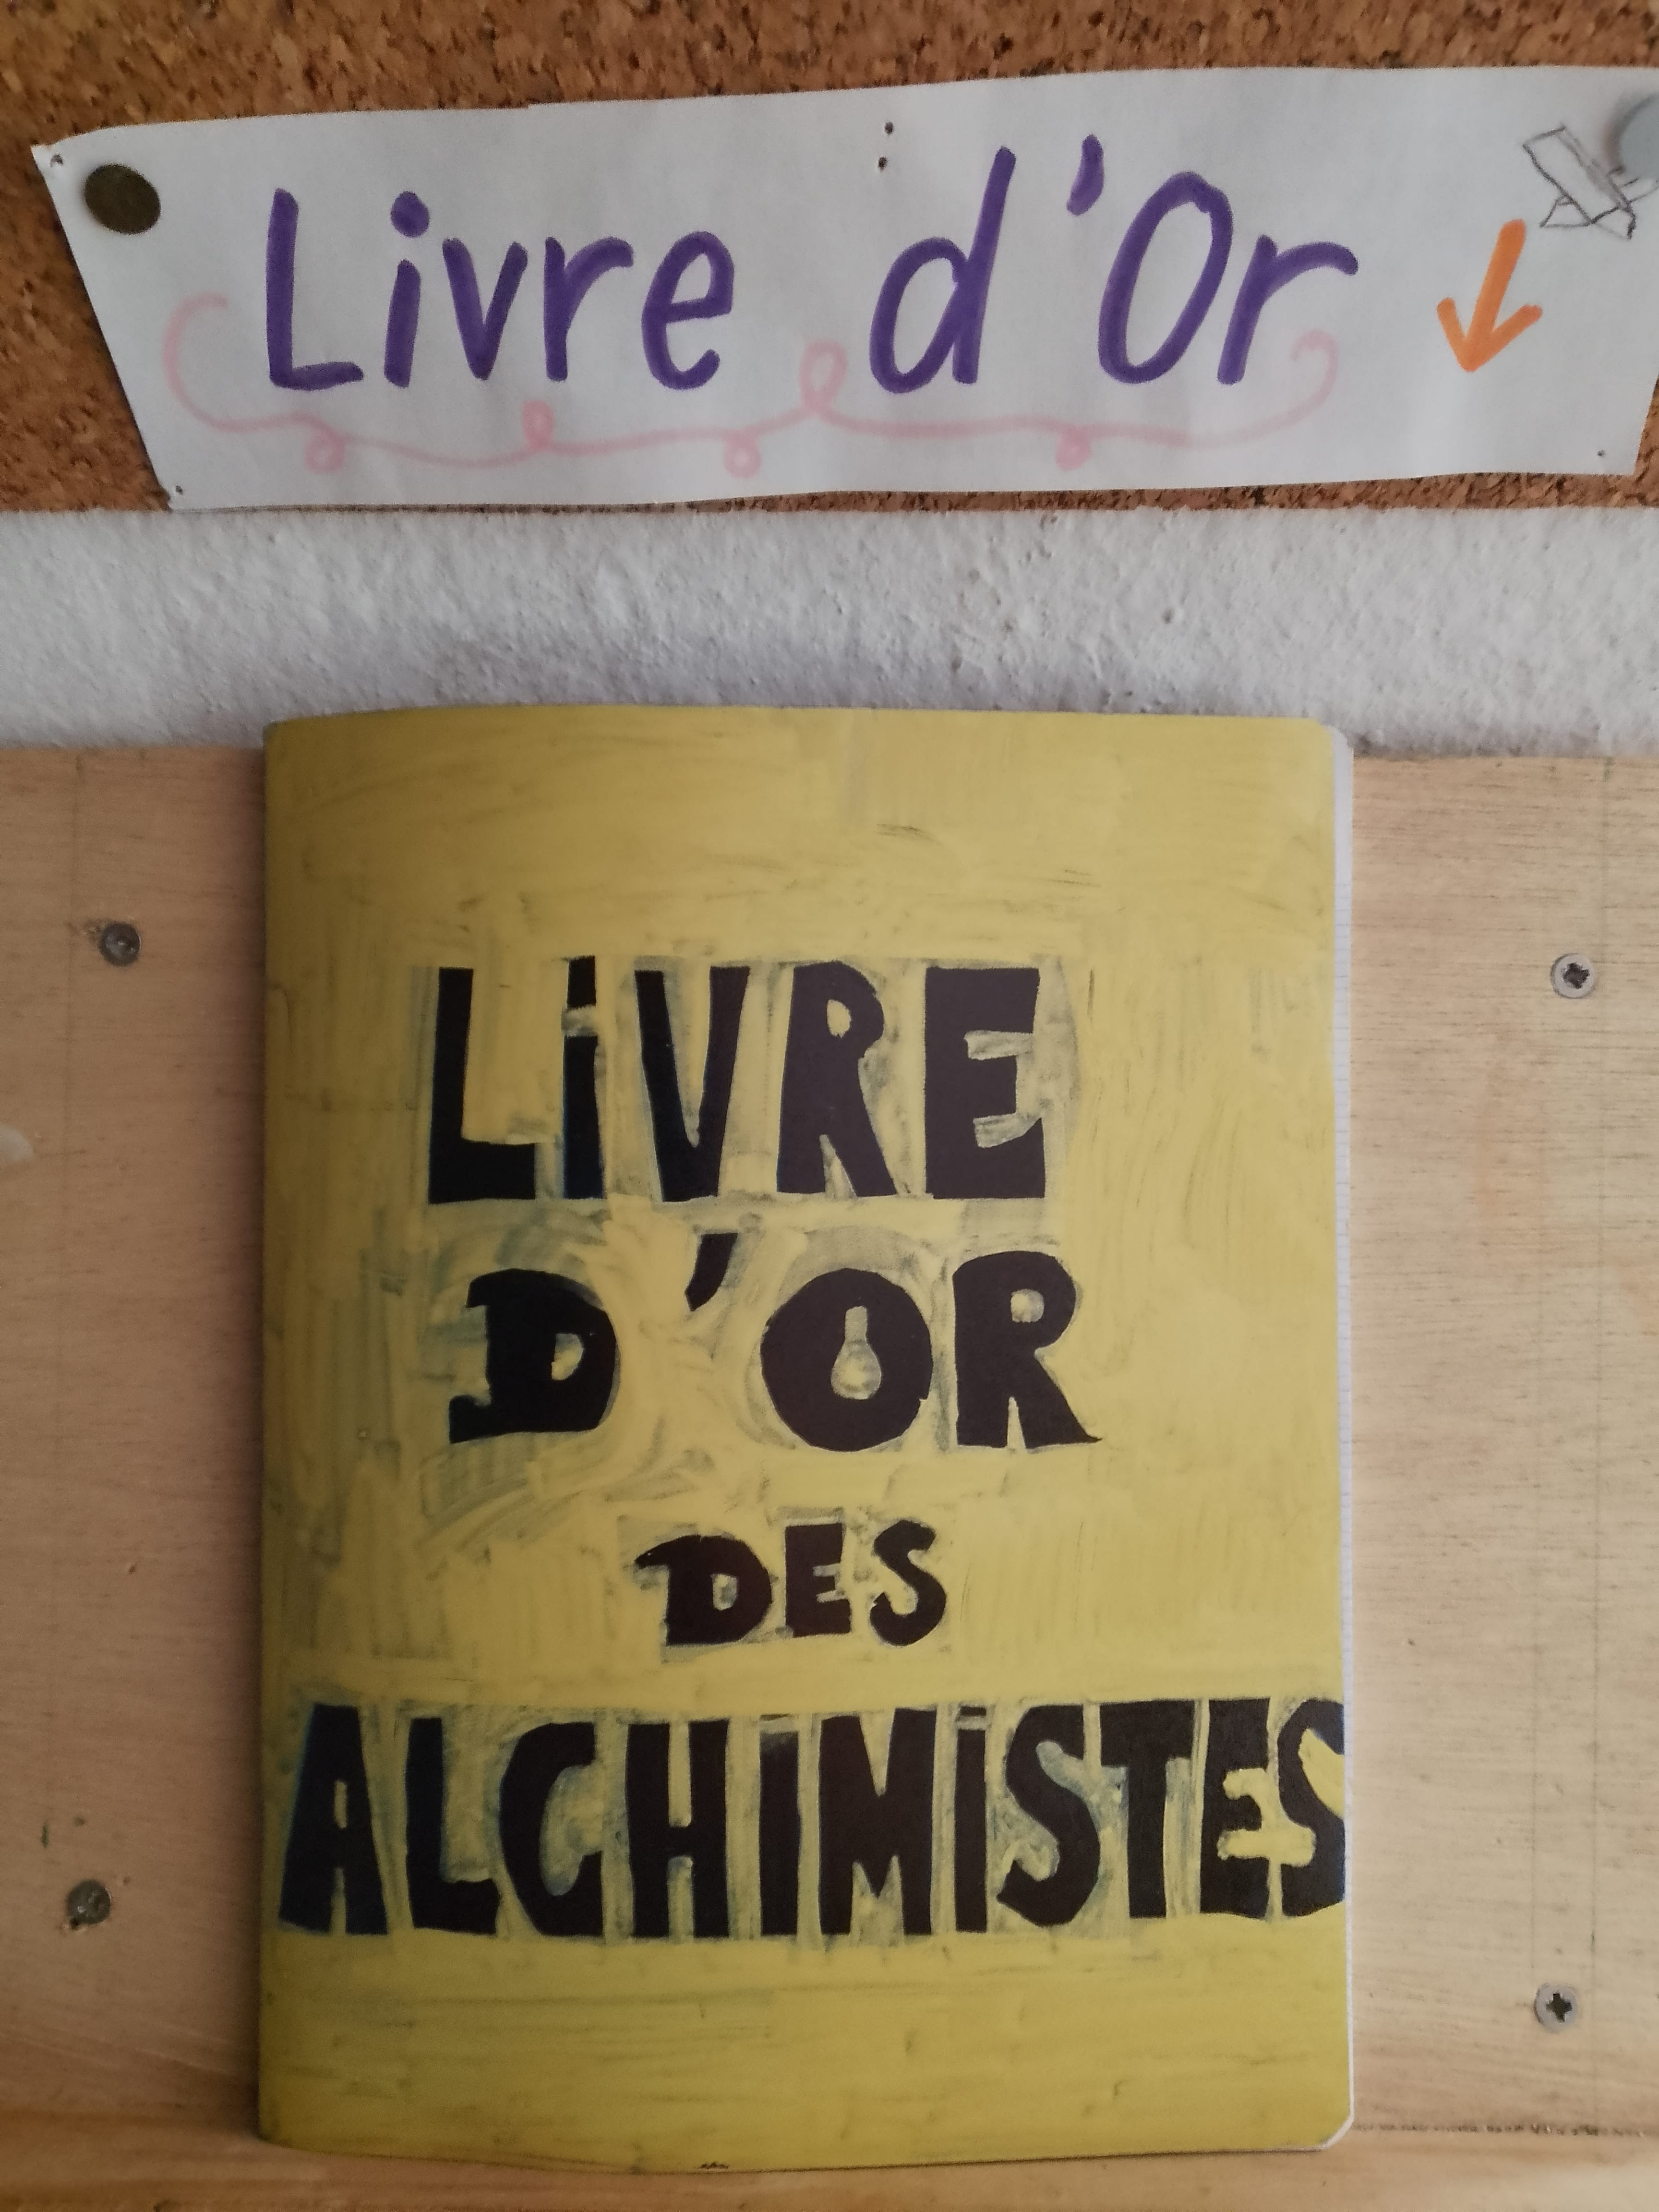 Livre d'Or
LiVRE
D'OR
DES
ALCHiMiSTES